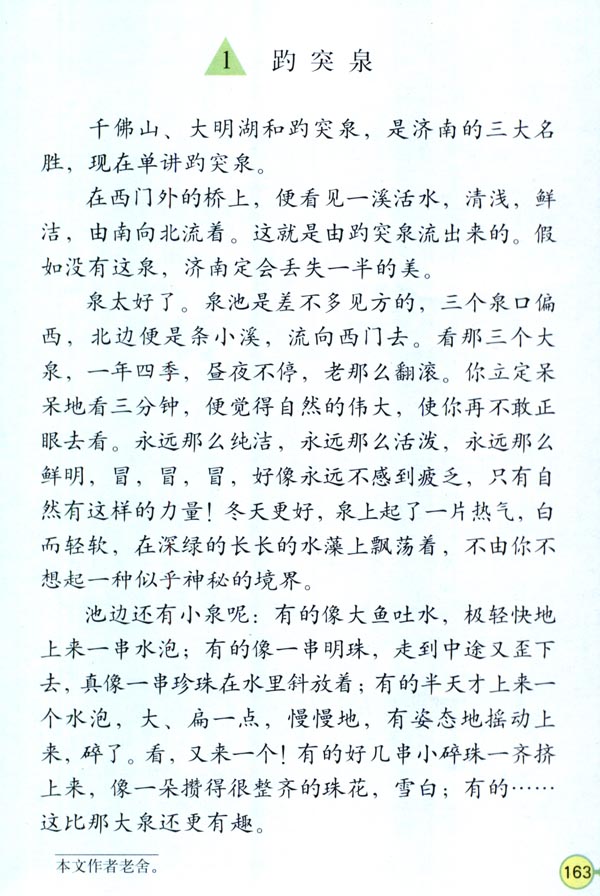 1 趵突泉
千佛山、大明湖和趵突泉，是济南的三大名
胜，现在单讲趵突泉。
在西门外的桥上，便看见一溪活水，清浅，鲜
洁，由南向北流着。这就是由趵突泉流出来的。假
如没有这泉，济南定会丢失一半的美。
泉太好了。泉池是差不多见方的，三个泉口偏
西，北边便是条小溪，流向西门去。看那三个大
泉，一年四季，昼夜不停，老那么翻滚。你立定呆
呆地看三分钟，便觉得自然的伟大，使你再不敢正
眼去看。永远那么纯洁，永远那么活泼，永远那么
鲜明，冒，冒，冒，好像永远不感到疲乏，只有自
然有这样的力量！冬天更好，泉上起了一片热气，白
而轻软，在深绿的长长的水藻上飘荡着，不由你不
想起一种似乎神秘的境界。
池边还有小泉呢：有的像大鱼吐水，极轻快地
上来一串水泡；有的像一串明珠，走到中途又歪下
去，真像一串珍珠在水里斜放着；有的半天才上来一
个水泡，大、扁一点，慢慢地，有姿态地摇动上
来，碎了。看，又来一个！有的好几串小碎珠一齐挤
上来，像一朵攒得很整齐的珠花，雪白；有的……
这比那大泉还更有趣。
本文作者老舍。
163